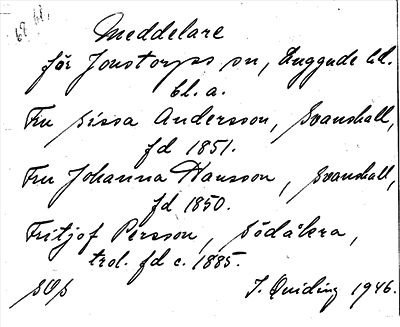 69 bl.
Meddelare
för Jonstorps sn, Luggude hd.
bl. a.
Fru Sissa Andersson, Svanshall,
fd 1851.
Fru Johanna Hansson, Svanshall,
fd 1850.
Fritjof Persson, Södåkra,
trol. fd c. 1885.
I. Quiding 1946.